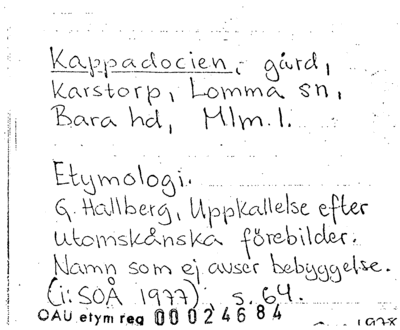 Kappadocien, gård,
Karstorp, Lomma sn,
Bara hd, Mlm. l.
Etymologi.
G. Hallberg, Uppkallelse efter
utomskånska förebilder.
Namn som ej avser bebyggelse.
(i: SOÅ 1977), s. 64.
OAU etym reg 00024684
1978